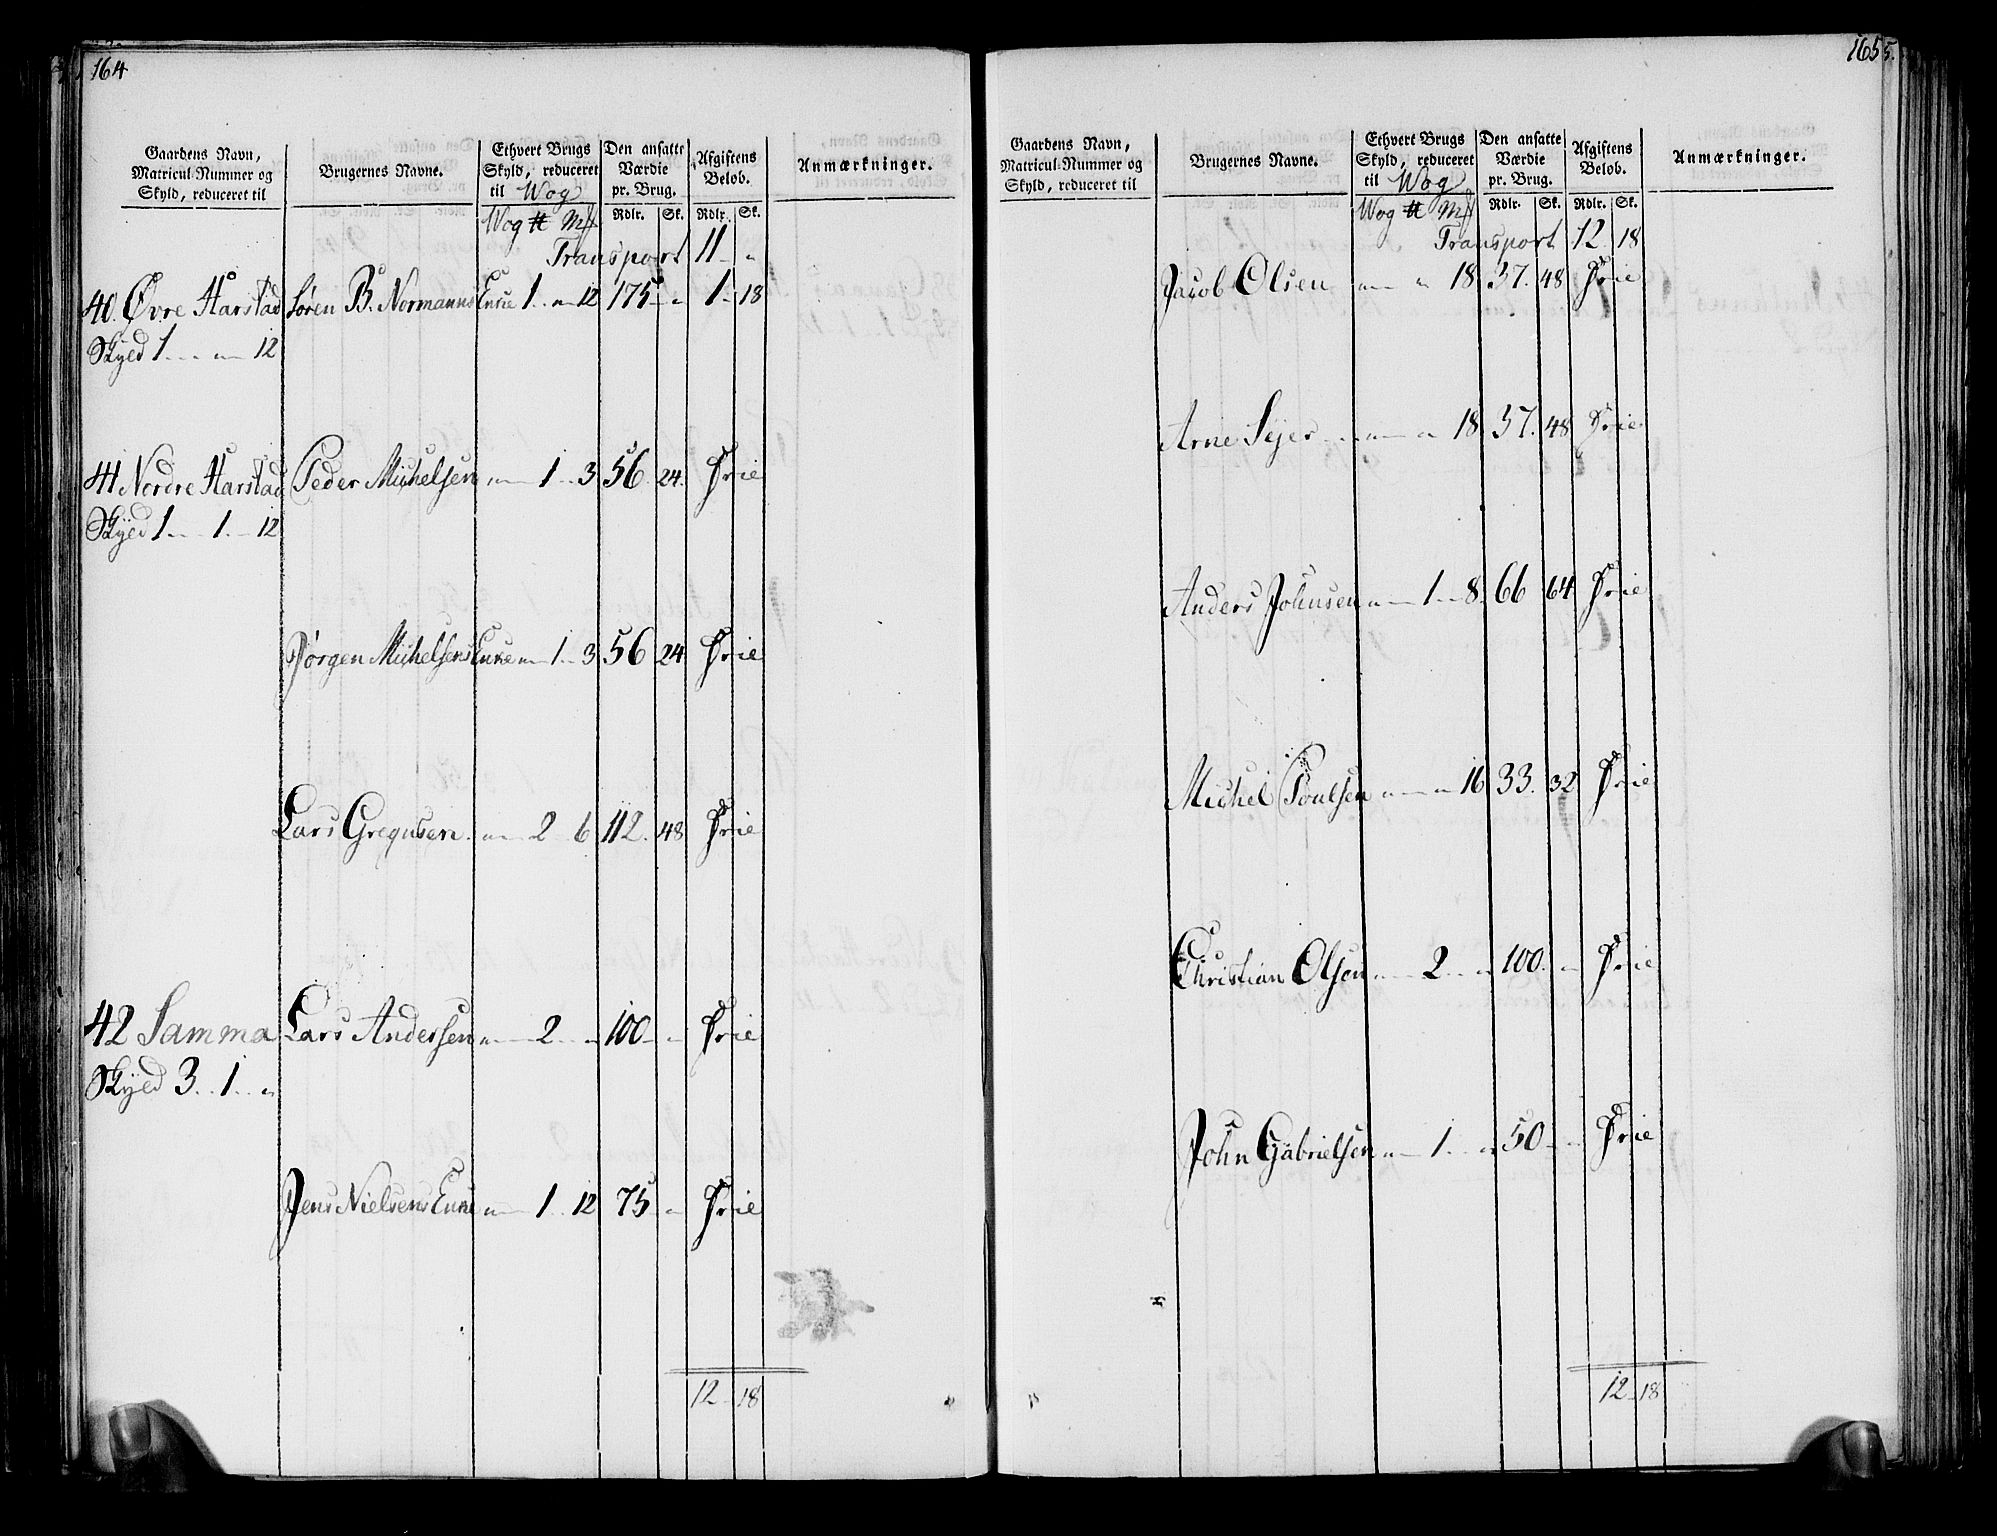 164
Gaardens Navn, Matricul-Nummer og Skyld, reduceret til
Brugernes Navne.
Ethvert Brugs Skyld, reduceret til Wog
Den ansatte Værdie pr. Brug.
Afgiftens Beløb.
Anmærkninger.
Wog ℔ Mk Rdlr. Sk. Rdlr. Sk.
Transport 11 - "
40. Øvre Harstad Søren B. Normanns Enke 1 .. " 12 175 - " 1 - 18
Skyld 1 ... " 12
41 Nordre Harstad Peder Michelsen " 1 .. 3 56. 24. Frie
Skyld 1 ... 1 .. 12
Jørgen Michelsens Enke " 1 .. 3 56 24 Frie
Lars Gregusen " 2 6 112. 48 Frie
42 Samma Lars Andersen " 2 .. " 100 - " Frie
Skyld 3 .. 1 .. "
Jens Nielsens Enke " 1 .. 12 75 - " Frie
12 - 18
1655.
Gaardens Navn, Matricul-Nummer og Skyld, reduceret til
Brugernes Navne.
Ethvert Brugs Skyld, reduceret til Wog
Den ansatte Værdie pr. Brug.
Afgiftens Beløb.
Anmærkninger.
Wog ℔ Mk Rdlr. Sk. Rdlr. Sk.
Transport 12. 18
Jacob Olsen " " 18 37. 48 Frie
Arne Sejer " " 18 37. 48 Frie
Anders Johnsen " 1 .. 8 66 64 Frie
Michel Poulsen " " 16 33. 32 Frie
Christian Olsen " 2 .. " 100. - " Frie
John Gabrielsen " 1 .. " 50 - " Frie
12 - 18